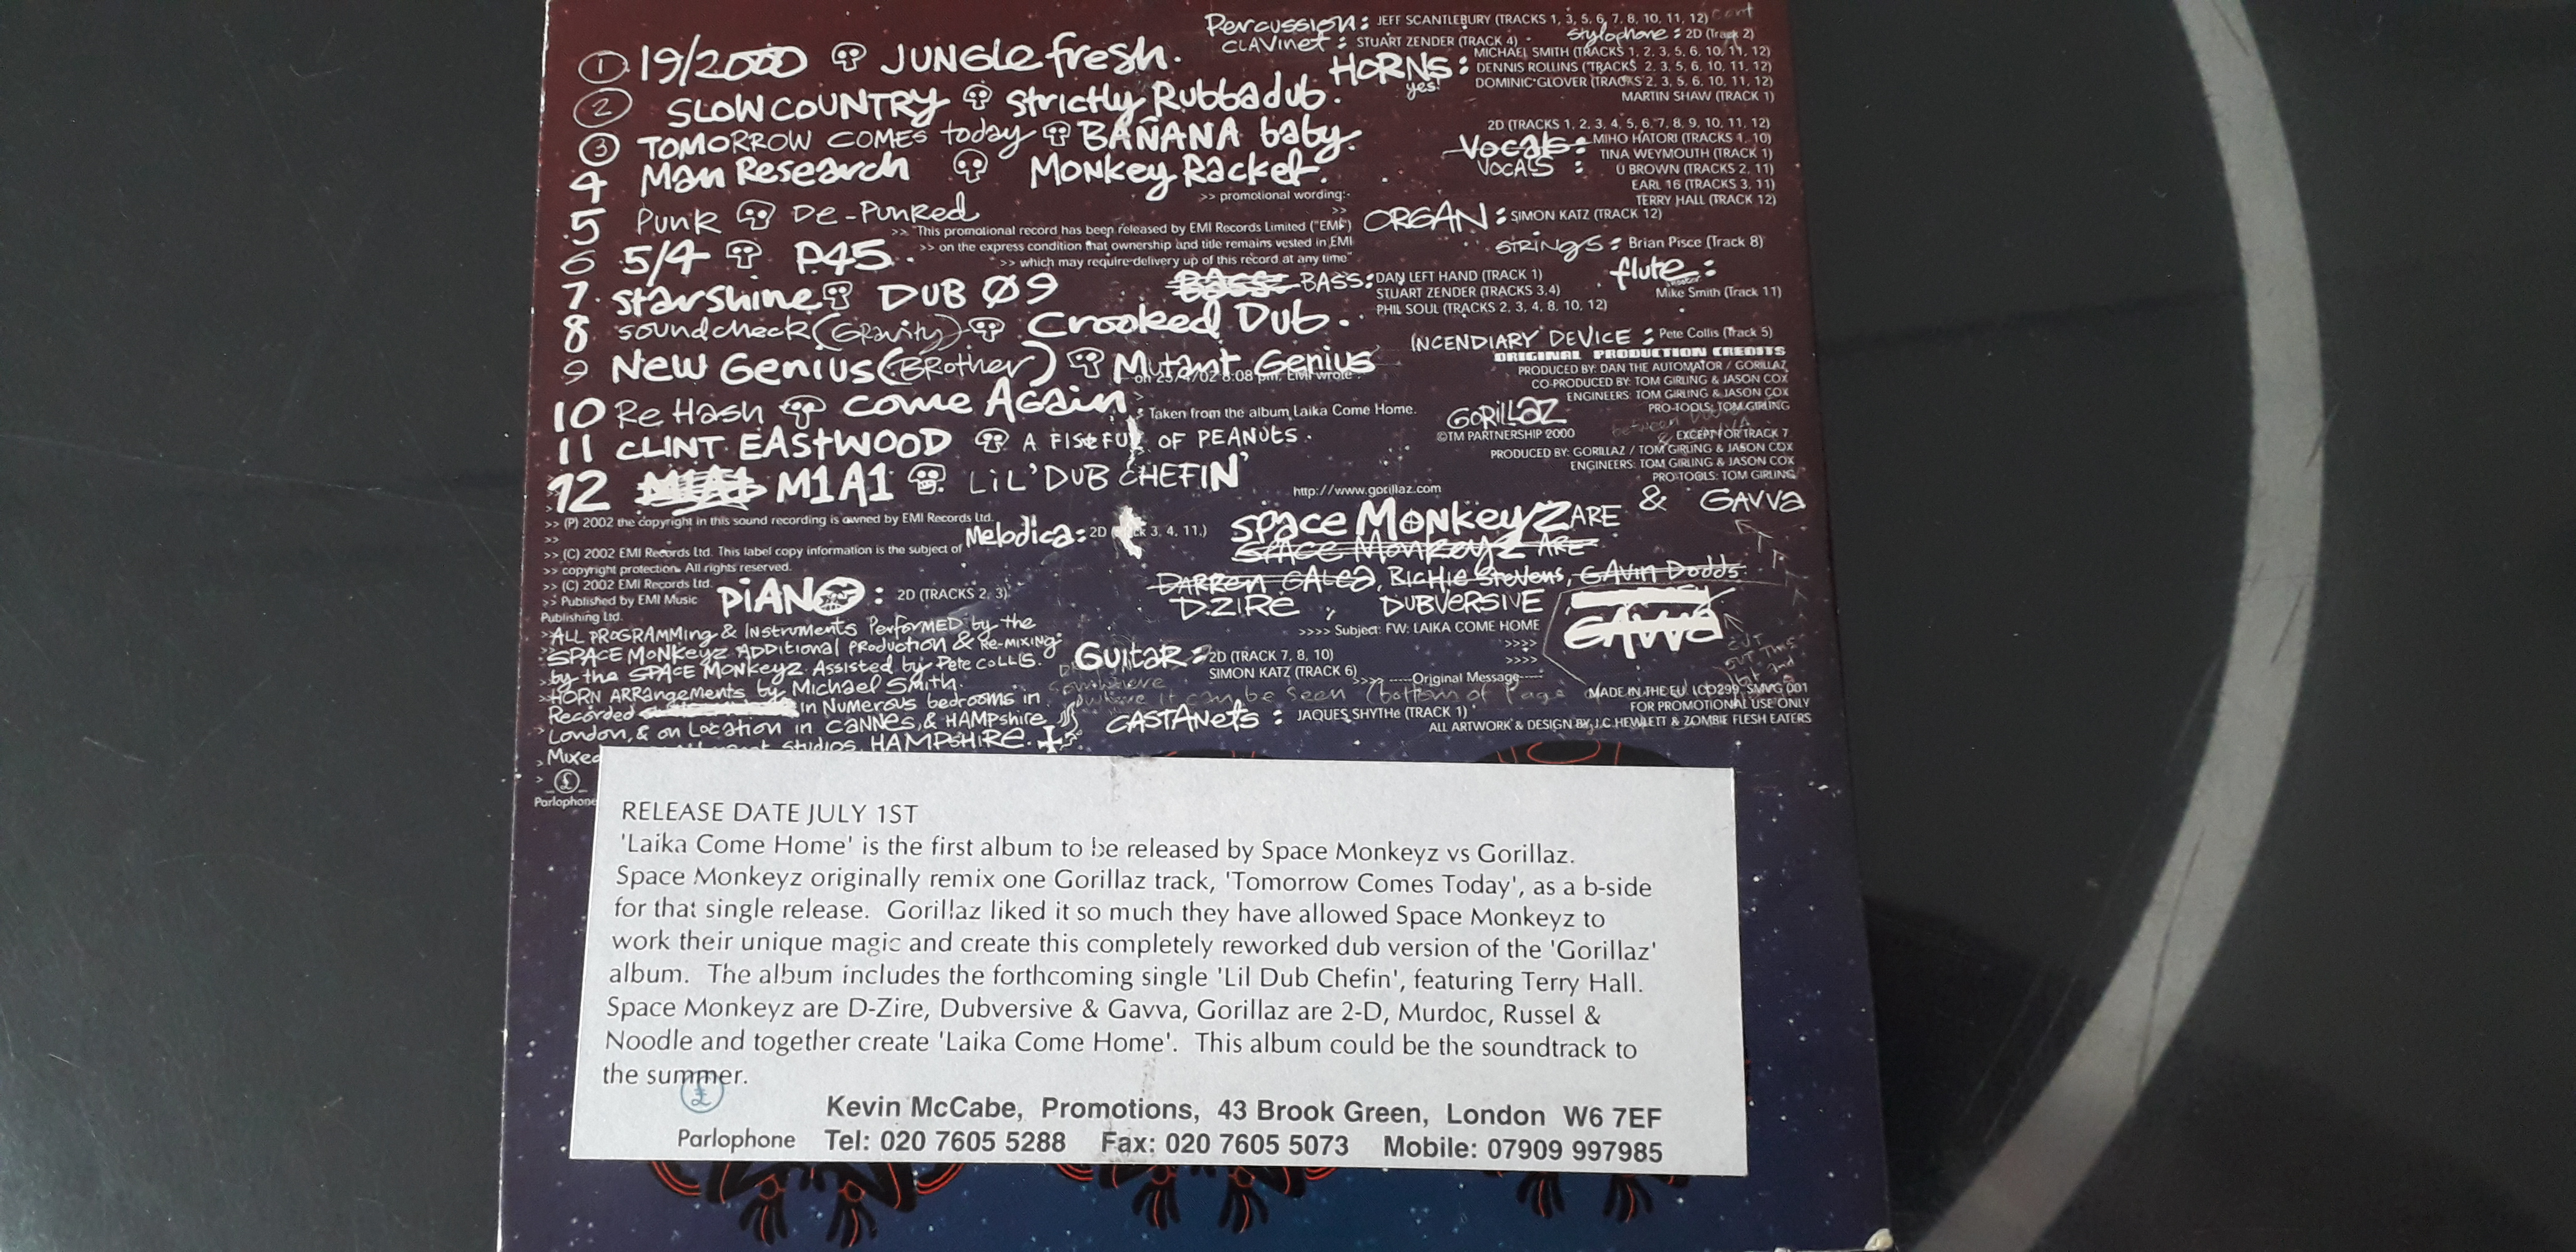 Percussion: JEFF SCANTLEBURY (TRACKS 1, 3, 5, 6, 7, 8, 10, 11, 12) cont
CLAVinet: STUART ZENDER (TRACK 4)
Stylophone: 2D (Track 2)
1 19/2000 JUNGLE fresh.
HORNS: yes!
MICHAEL SMITH (TRACKS 1, 2, 3, 5, 6, 10, 11, 12)
DENNIS ROLLINS (TRACKS 2, 3, 5, 6, 10, 11, 12)
DOMINIC GLOVER (TRACKS 2, 3, 5, 6, 10, 11, 12)
MARTIN SHAW (TRACK 1)
2 SLOW COUNTRY Strictly Rubbadub.
3 TOMORROW COMES today BAÑANA baby.
4 Man Research MONKEY Racket.
Vocals:
VOCALS :
2D (TRACKS 1, 2, 3, 4, 5, 6, 7, 8, 9, 10, 11, 12)
MIHO HATORI (TRACKS 1, 10)
TINA WEYMOUTH (TRACK 1)
U BROWN (TRACKS 2, 11)
EARL 16 (TRACKS 3, 11)
TERRY HALL (TRACK 12)
>> promotional wording:-
>>
5 Punk De-Punked
ORGAN: SIMON KATZ (TRACK 12)
>> "This promotional record has been released by EMI Records Limited ("EMI")
>> on the express condition that ownership and title remains vested in EMI
>> which may require delivery up of this record at any time"
STRINGS: Brian Pisce (Track 8)
6 5/4 P45.
flute:
Mike Smith (Track 11)
BASS: BASS: DAN LEFT HAND (TRACK 1)
STUART ZENDER (TRACKS 3,4)
PHIL SOUL (TRACKS 2, 3, 4, 8, 10, 12)
7. starshine DUB Ø9
8 soundcheck (Gravity) Crooked Dub.
INCENDIARY DEVICE: Pete Collis (Track 5)
9 New Genius (BRother) Mutant Genius
on 25/4/02 6:08 pm, EMI wrote:
ORIGINAL PRODUCTION CREDITS
PRODUCED BY: DAN THE AUTOMATOR / GORILLAZ
CO-PRODUCED BY: TOM GIRLING & JASON COX
ENGINEERS: TOM GIRLING & JASON COX
PRO-TOOLS: TOM GIRLING
10 Re Hash come Again
Taken from the album Laika Come Home.
GORILLAZ
©TM PARTNERSHIP 2000
EXCEPT FOR TRACK 7
PRODUCED BY: GORILLAZ / TOM GIRLING & JASON COX
ENGINEERS: TOM GIRLING & JASON COX
PRO-TOOLS: TOM GIRLING
11 CLINT EASTWOOD A FISTFUL OF PEANUTS.
12 M1A1 M1A1 LiL' DUB CHEFIN'
http://www.gorillaz.com
space MonkeyZ ARE & GAVVA
SPACE MonkeyZ ARE
>> (P) 2002 the copyright in this sound recording is owned by EMI Records Ltd.
>>
Melodica: 2D 3, 4, 11.)
>> (C) 2002 EMI Records Ltd. This label copy information is the subject of
>> copyright protection. All rights reserved.
>> (C) 2002 EMI Records Ltd.
>> Published by EMI Music
Publishing Ltd.
DARREN GALEA, RICHIE Stevens, GAVIN Dodds
D.ZIRE , DUBVERSIVE GAVVA
PIANO: 2D (TRACKS 2, 3)
CUT
OUT THIS
bit and
>>>> Subject: FW: LAIKA COME HOME
>>>>
>>>>
>>>> -----Original Message-----
ALL PROGRAMMING & Instruments Performed by the
SPACE Monkeyz ADDitional PRoduction & Re-mixing
by the SPACE MONKEYZ. Assisted by Pete COLLIS.
HORN ARRangements by Michael Smith.
Recorded in Numerous bedrooms in
London, & on Location in CANNES, & HAMPshire
Mixed Studios, HAMPSHIRE.
GUITAR: 2D (TRACK 7, 8, 10)
SIMON KATZ (TRACK 6)
somewhere
where it can be seen (bottom of Page
CASTANets: JAQUES SHYTHE (TRACK 1)
MADE IN THE EU. LCD299, SMVG 001
FOR PROMOTIONAL USE ONLY
ALL ARTWORK & DESIGN BY J.C.HEWLETT & ZOMBIE FLESH EATERS
£
Parlophone
RELEASE DATE JULY 1ST
'Laika Come Home' is the first album to be released by Space Monkeyz vs Gorillaz.
Space Monkeyz originally remix one Gorillaz track, 'Tomorrow Comes Today', as a b-side
for that single release. Gorillaz liked it so much they have allowed Space Monkeyz to
work their unique magic and create this completely reworked dub version of the 'Gorillaz'
album. The album includes the forthcoming single 'Lil Dub Chefin', featuring Terry Hall.
Space Monkeyz are D-Zire, Dubversive & Gavva, Gorillaz are 2-D, Murdoc, Russel &
Noodle and together create 'Laika Come Home'. This album could be the soundtrack to
the summer.
£
Parlophone
Kevin McCabe, Promotions, 43 Brook Green, London W6 7EF
Tel: 020 7605 5288 Fax: 020 7605 5073 Mobile: 07909 997985